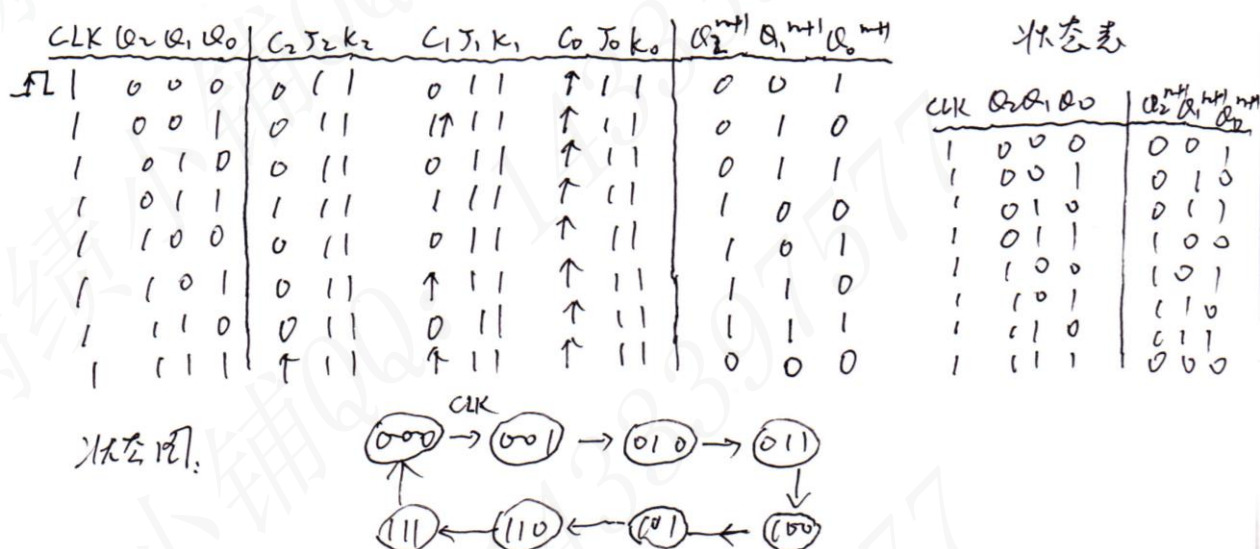 CLK Q2 Q1 Q0 C2 J2 K2 C1 J1 K1 C0 J0 K0 Q2^n+1 Q1^n+1 Q0^n+1
1 0 0 0 0 1 1 0 1 1 ↑ 1 1 0 0 1
1 0 0 1 0 1 1 1↑ 1 1 ↑ 1 1 0 1 0
1 0 1 0 0 1 1 0 1 1 ↑ 1 1 0 1 1
1 0 1 1 1 1 1 1 1 1 ↑ 1 1 1 0 0
1 1 0 0 0 1 1 0 1 1 ↑ 1 1 1 0 1
1 1 0 1 0 1 1 ↑ 1 1 ↑ 1 1 1 1 0
1 1 1 0 0 1 1 0 1 1 ↑ 1 1 1 1 1
1 1 1 1 ↑ 1 1 ↑ 1 1 ↑ 1 1 0 0 0
状态表
CLK Q2 Q1 Q0 Q2^n+1 Q1^n+1 Q0^n+1
1 0 0 0 0 0 1
1 0 0 1 0 1 0
1 0 1 0 0 1 1
1 0 1 1 1 0 0
1 1 0 0 1 0 1
1 1 0 1 1 1 0
1 1 1 0 1 1 1
1 1 1 1 0 0 0
状态图:
CLK
000 → 001 → 010 → 011
111 ← 110 ← 101 ← 100